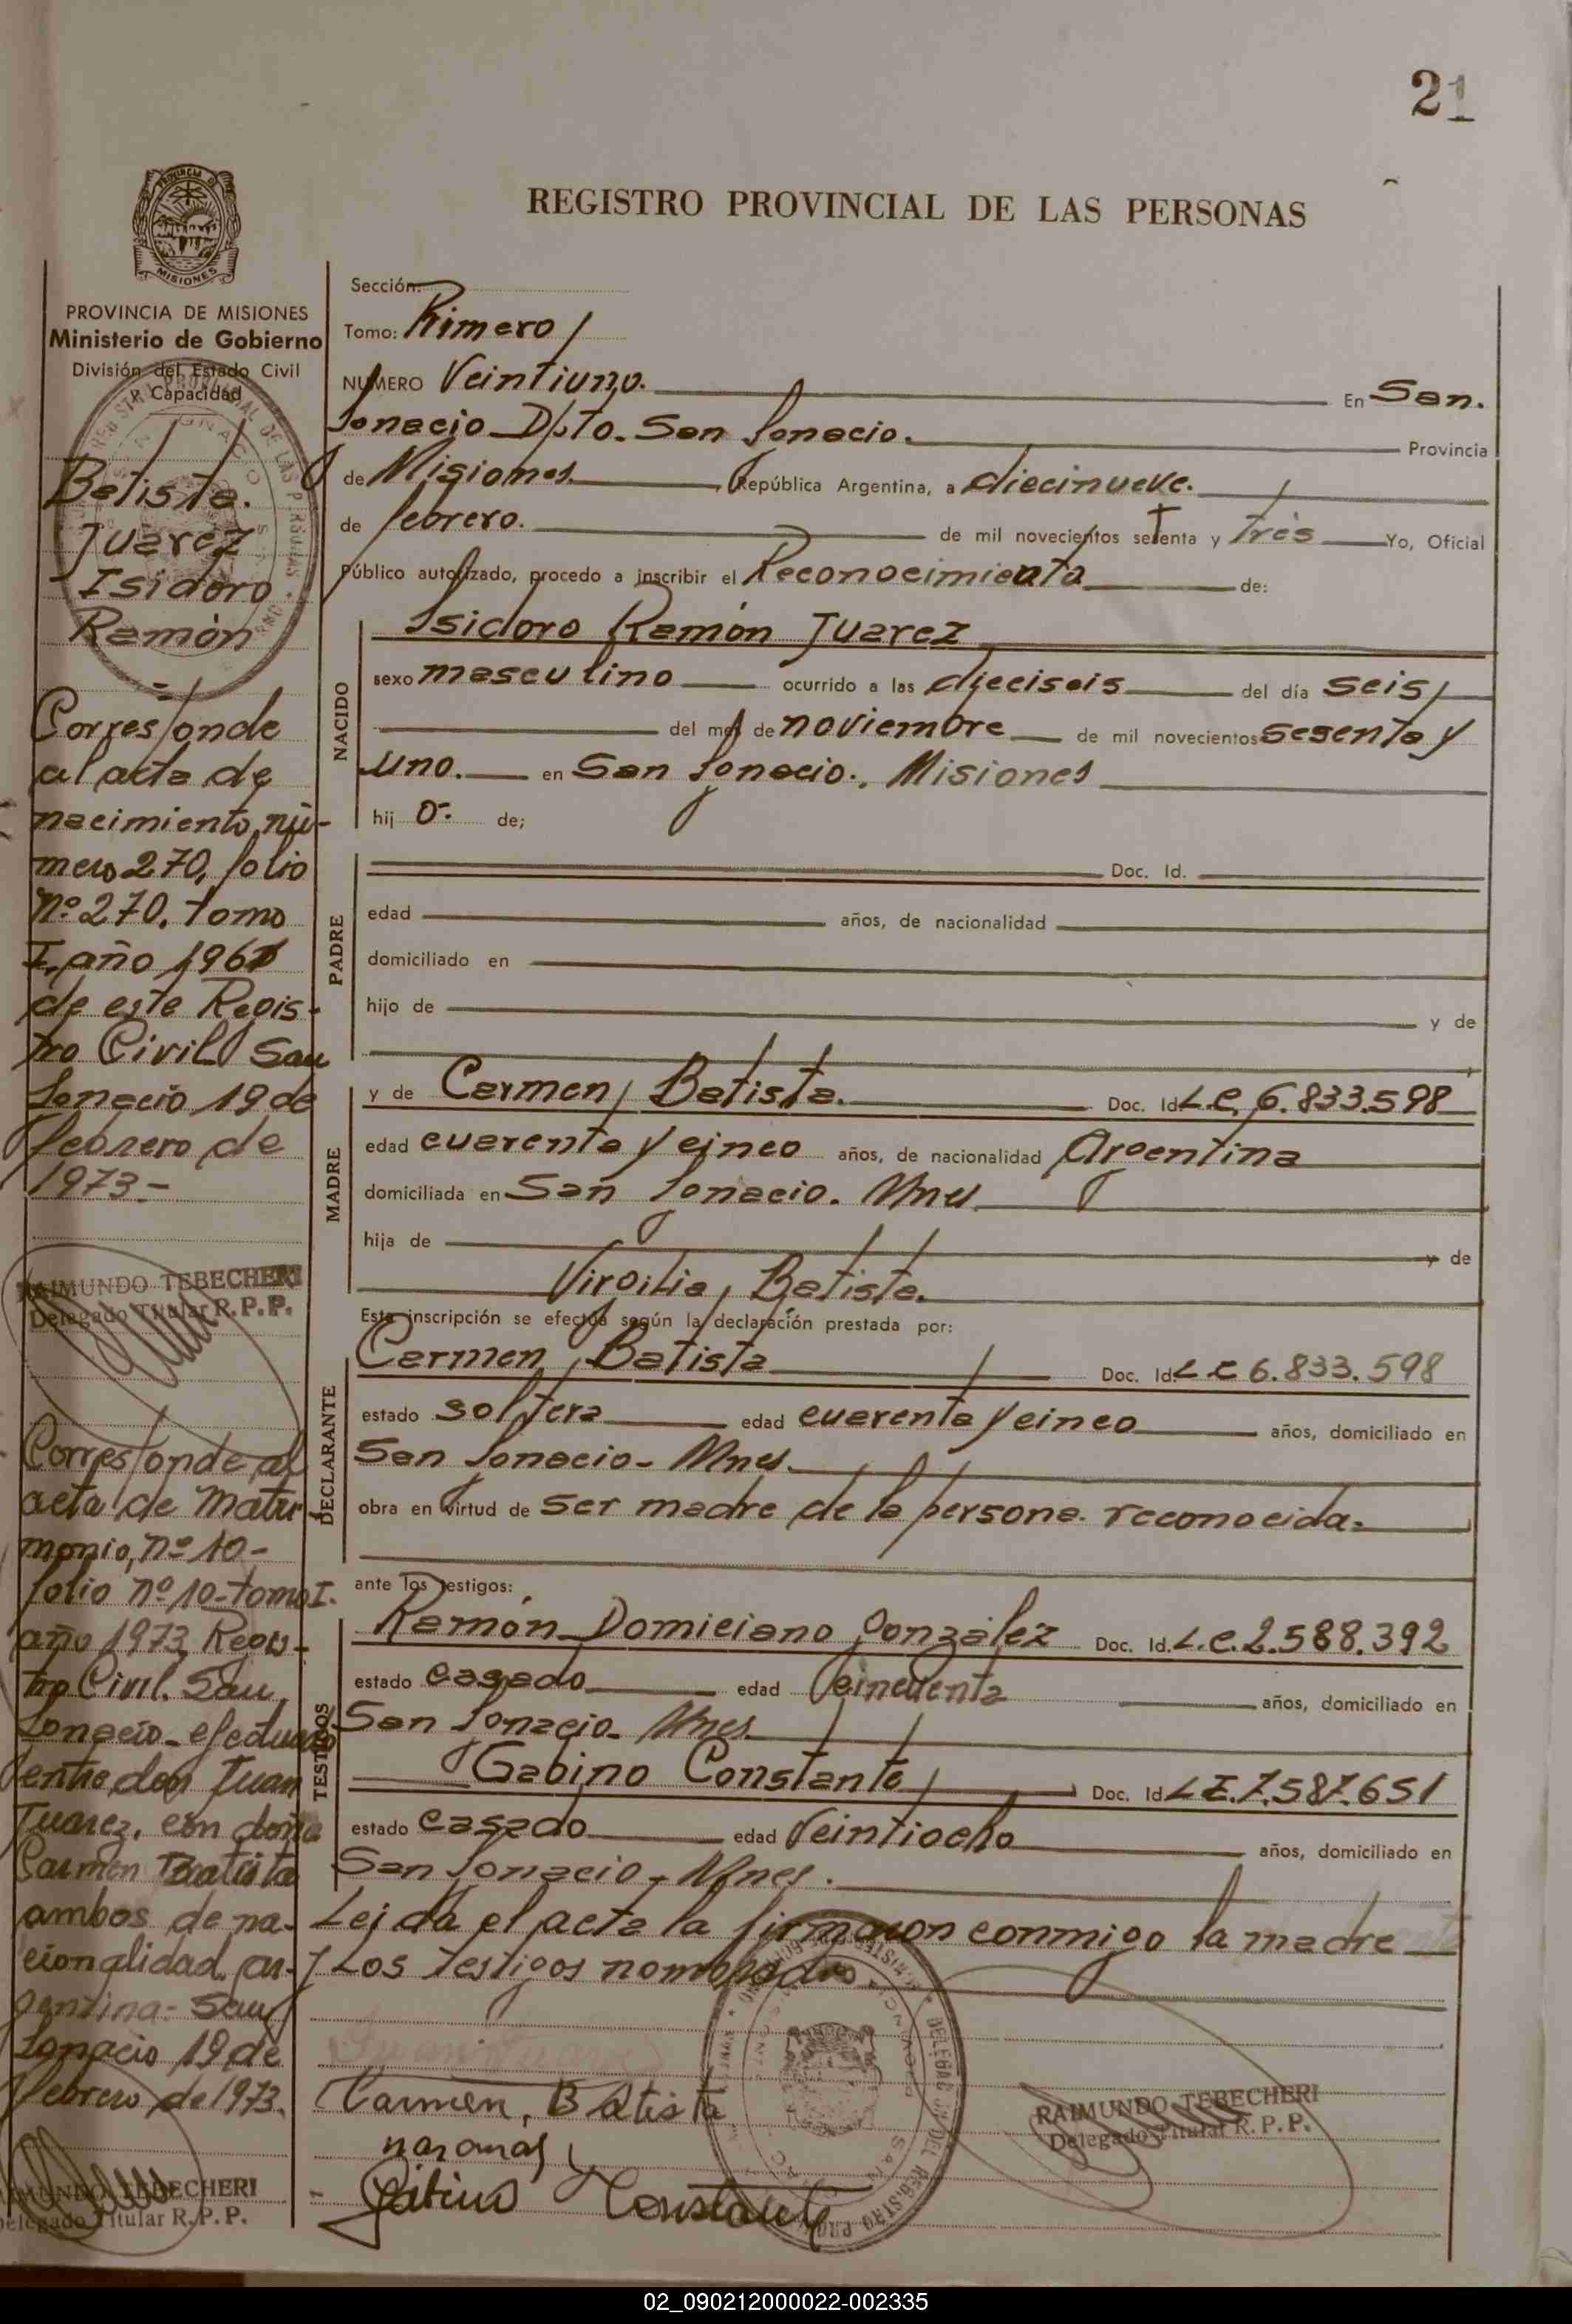 21
REGISTRO PROVINCIAL DE LAS PERSONAS
PROVINCIA DE MISIONES
Ministerio de Gobierno
División del Estado Civil
y Capacidad
Batista.
Juarez
Isidoro
Ramón
Corresponde
al acta de
nacimiento, nú-
mero 270, folio
nº 270. tomo
I. año 1961
de este Regis-
tro Civil San
Ignacio 19 de
febrero de
1973.-
RAIMUNDO TEBECHERI
Delegado Titular R. P. P.
Corresponde al
acta de Matri
monio, nº 10-
folio nº 10-tomo I.
año 1973 Regis-
tro Civil. San
Ignacio-efectuado
entre don Juan
Juarez, con doña
Carmen Batista
ambos de na-
cionalidad ar-
gentina- San
Ignacio 19 de
febrero de 1973.
RAIMUNDO TEBECHERI
Delegado Titular R. P. P.
Sección:
Tomo: Primero
NUMERO Veintiuno. En San.
Ignacio Dpto. San Ignacio. Provincia
de Misiones, República Argentina, a diecinueve.
de febrero. de mil novecientos setenta y trés Yo, Oficial
Público autorizado, procedo a inscribir el Reconocimiento de:
NACIDO
Isidoro Ramón Juarez
sexo masculino ocurrido a las dieciseis del día seis
del mes de noviembre de mil novecientos sesenta y
uno. en San Ignacio. Misiones
hij o. de;
PADRE
Doc. Id.
edad años, de nacionalidad
domiciliado en
hijo de y de
MADRE
y de Carmen Batista. Doc. Id. L.C. 6.833.598
edad cuarenta y cinco años, de nacionalidad Argentina
domiciliada en San Ignacio. Mnes
hija de y de
Virgilia Batista.
Esta inscripción se efectúa según la declaración prestada por:
DECLARANTE
Carmen Batista Doc. Id. L C 6.833.598
estado soltera edad cuarenta y cinco años, domiciliado en
San Ignacio- Mnes.
obra en virtud de ser madre de la persona reconocida.
ante los testigos:
TESTIGOS
Ramón Domiciano González Doc. Id. L.C. 2.588.392
estado casado edad cincuenta años, domiciliado en
San Ignacio- Mnes.
Gabino Constante Doc. Id. L E. 7.587.651
estado casado edad Veintiocho años, domiciliado en
San Ignacio- Mnes.
Leida el acta la firmaron conmigo la madre
y Los testigos nombrados
Carmen, Batista
Gabino Constante
RAIMUNDO TEBECHERI
Delegado Titular R. P. P.
02_090212000022-002335